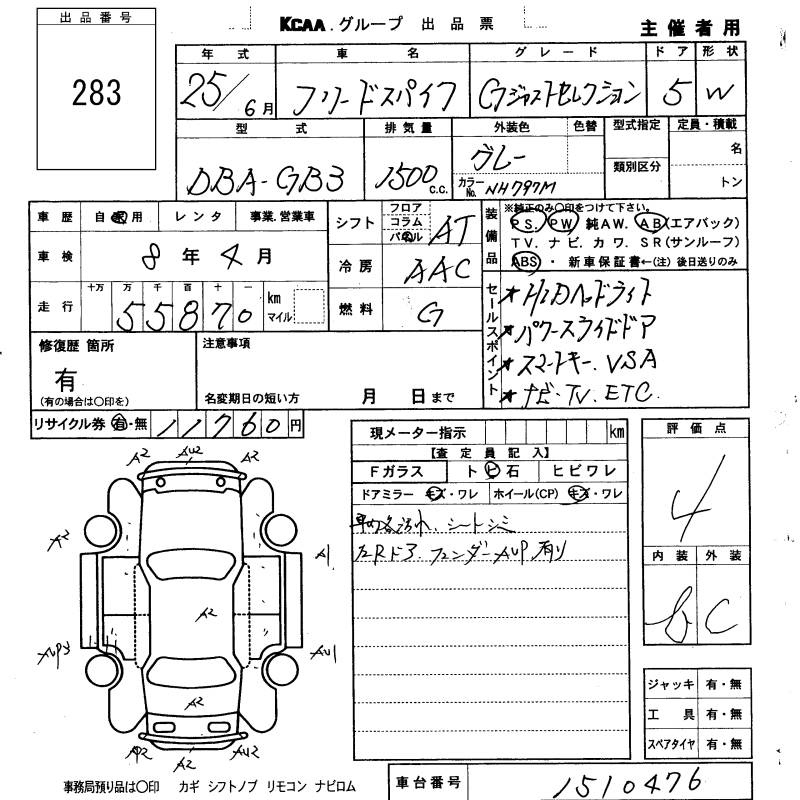 出品番号
283
KCAA.グループ 出品票
主催者用
年式 車名 グレード ドア 形状
25/6月 フリードスパイク Gジャストセレクション 5 W
型式 排気量 外装色 色替 型式指定 定員・積載
DBA-GB3 1500c.c. グレー 類別区分 名
カラーNo. NH797M トン
車歴 自家用 レンタ 事業.営業車
車検 8年4月
走行 十万 万 千 百 十 一 km マイル
55870
シフト フロア コラム パネル AT
冷房 AAC
燃料 G
装備品 ※純正のみ〇印をつけて下さい。
PS. PW 純AW. AB(エアバック)
TV. ナビ. カワ. SR(サンルーフ)
ABS・ 新車保証書←(注)後日送りのみ
修復歴 箇所
有
(有の場合は〇印を)
注意事項
名変期日の短い方 月 日まで
セールスポイント
★HIDヘッドライト
★パワースライドドア
★スマートキー. VSA
★ナビ・TV. ETC.
リサイクル券 有・無 11760円
現メーター指示 km
【査定員記入】
Fガラス ト ヒ 石 ヒビワレ
ドアミラー キズ・ワレ ホイール(CP) キズ・ワレ
車内各汚れ、シートシミ
左Rドア.フェンダーAUP有り
評価点
4
内装 外装
B C
A2 AU2 A2
A2 A1
A2
AUP3 AU1
A2
A2 A2 AU2
ジャッキ 有・無
工具 有・無
スペアタイヤ 有・無
事務局預り品は〇印 カギ シフトノブ リモコン ナビロム
車台番号 1510476